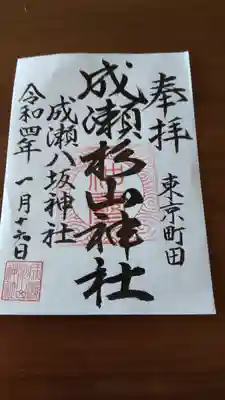 奉拝
東京町田
成瀬杉山神社
成瀬八坂神社
令和四年 一月十六日